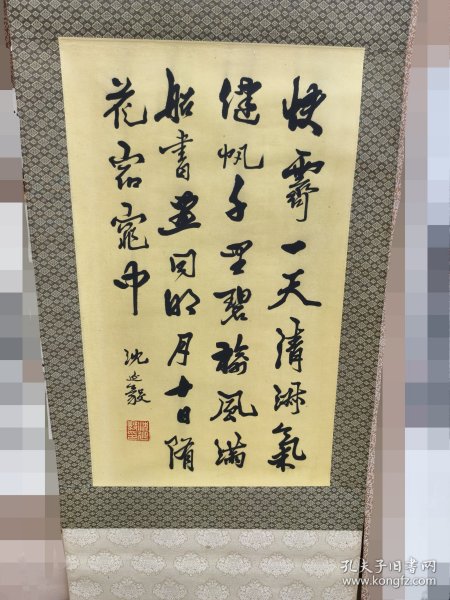 快霽一天清淑氣
健帆千里碧榆風滿
船書畫同明月十日隨
花窈窕中
沈延毅
孔夫子旧书网
www.kongfz.com